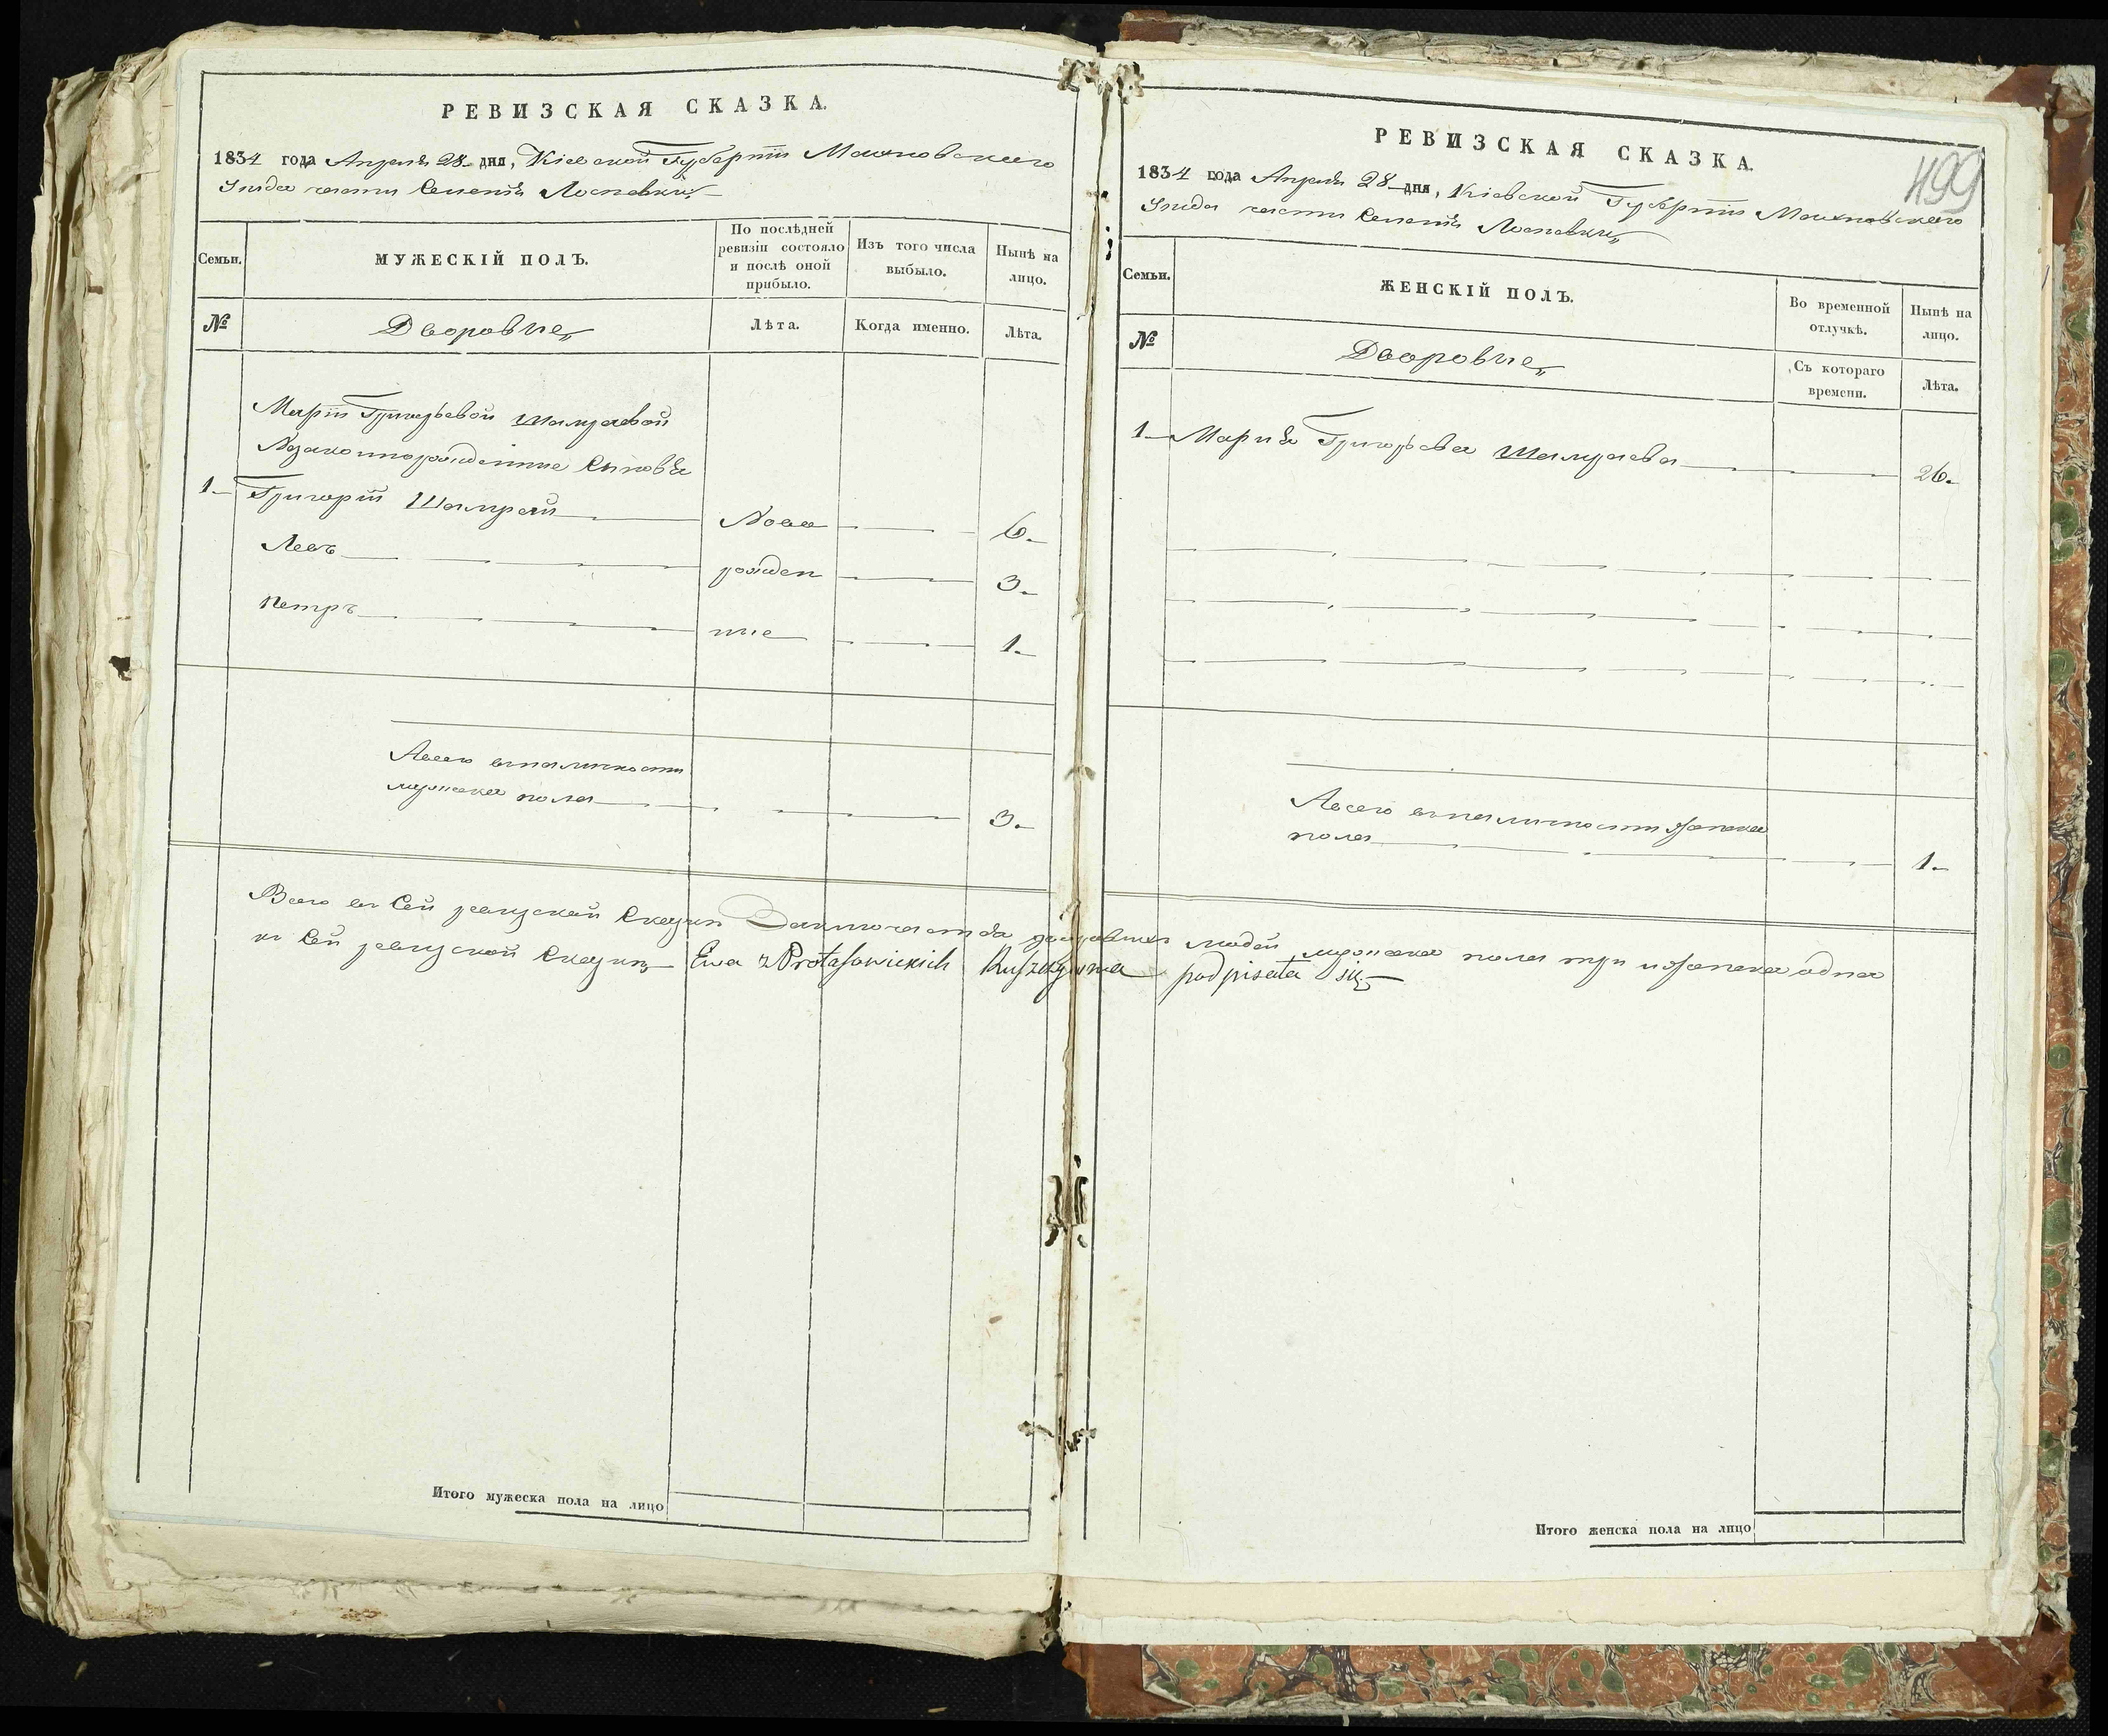 РЕВИЗСКАЯ СКАЗКА.
1834 года Апреля 28 дня, Кіевской Губерніи Махновскаго
Уезда части Селенія
Семьи.
МУЖЕСКІЙ ПОЛЪ.
По послѣдней
ревизіи состояло
и послѣ оной
прибыло.
Изъ того числа
выбыло.
Нынѣ на
лицо.
№
Дворовые
Лѣта.
Когда именно.
Лѣта.
Маріи Григорьевой
Незаконнорожденные Сыновья
1 Григорій Ново 6.
Левъ рожден 3.
Петръ ные 1.
Всего въ наличности
мужеска пола 3.
РЕВИЗСКАЯ СКАЗКА.
499
1834 года Апреля 28 дня, Кіевской Губерніи Махновскаго
Уезда части Селенія
Семьи.
ЖЕНСКІЙ ПОЛЪ.
Во временной
отлучкѣ.
Нынѣ на
лицо.
№
Дворовые
Съ котораго
времени.
Лѣта.
1 Марія Григорьева 26.
Всего въ наличности женска
пола 1.
Всего въ Сей ревизской Сказки Заключается дворовыхъ людей мужеска пола три и женска одна
къ Сей ревизской Сказки Ewa z Protasowickich podpisała się
Итого мужеска пола на лицо
Итого женска пола на лицо